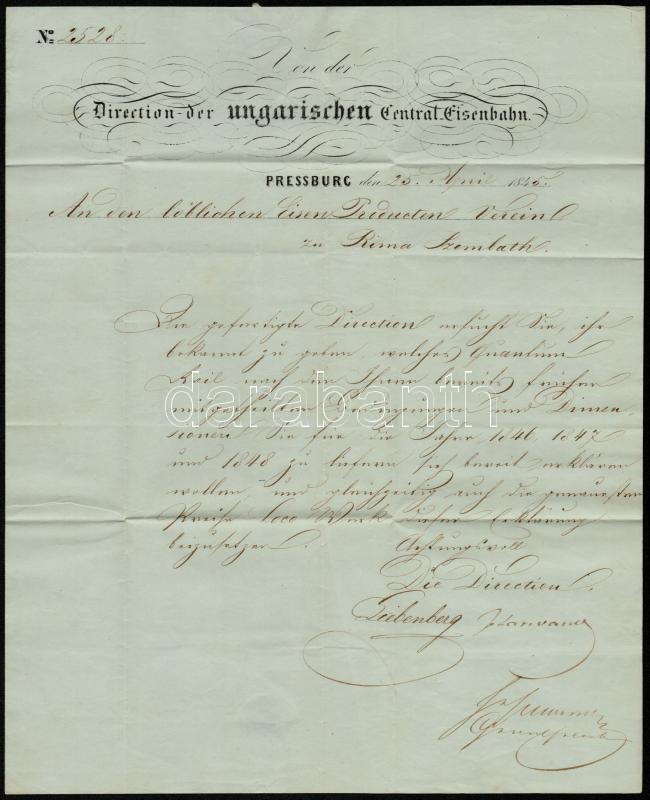 No 2528.
Von der
Direction der ungarischen Central-Eisenbahn.
PRESSBURG den 25. April 1845.
An den löblichen Eisen Producten Verein
zu Rima Szombath.
Die gefertigte Direction ersucht Sie, ihr
bekannt zu geben, welches Quantum
Rail nach den Ihnen bereits früher
mitgetheilten Bedingungen und Dimen-
sionen Sie für die Jahre 1846, 1847
und 1848 zu liefern sich bereit erklären
wollen, und gleichzeitig auch die genauesten
Preise loco Werk dieser Erklärung
beizusetzen.
Achtungsvoll
Die Direction.
Liebenberg
darabanth